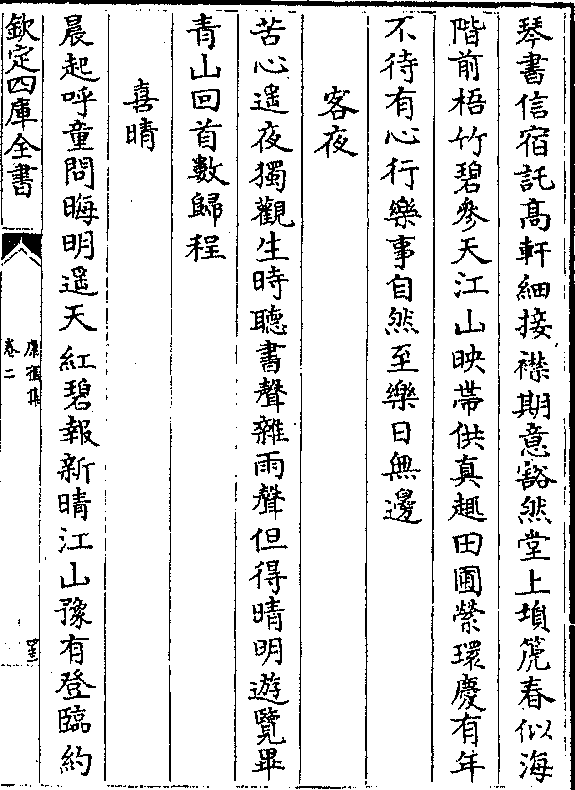 琴書信宿託高軒細接襟期意豁然堂上塤箎春似海
階前梧竹碧參天江山映帶供真趣田圃縈環慶有年
不待有心行樂事自然至樂日無邊
客夜
苦心遥夜獨觀生時聽書聲雜雨聲但得晴明遊覽畢
青山回首數歸程
喜晴
晨起呼童問晦明遥天紅碧報新晴江山豫有登臨約
欽定四庫全書
卷二